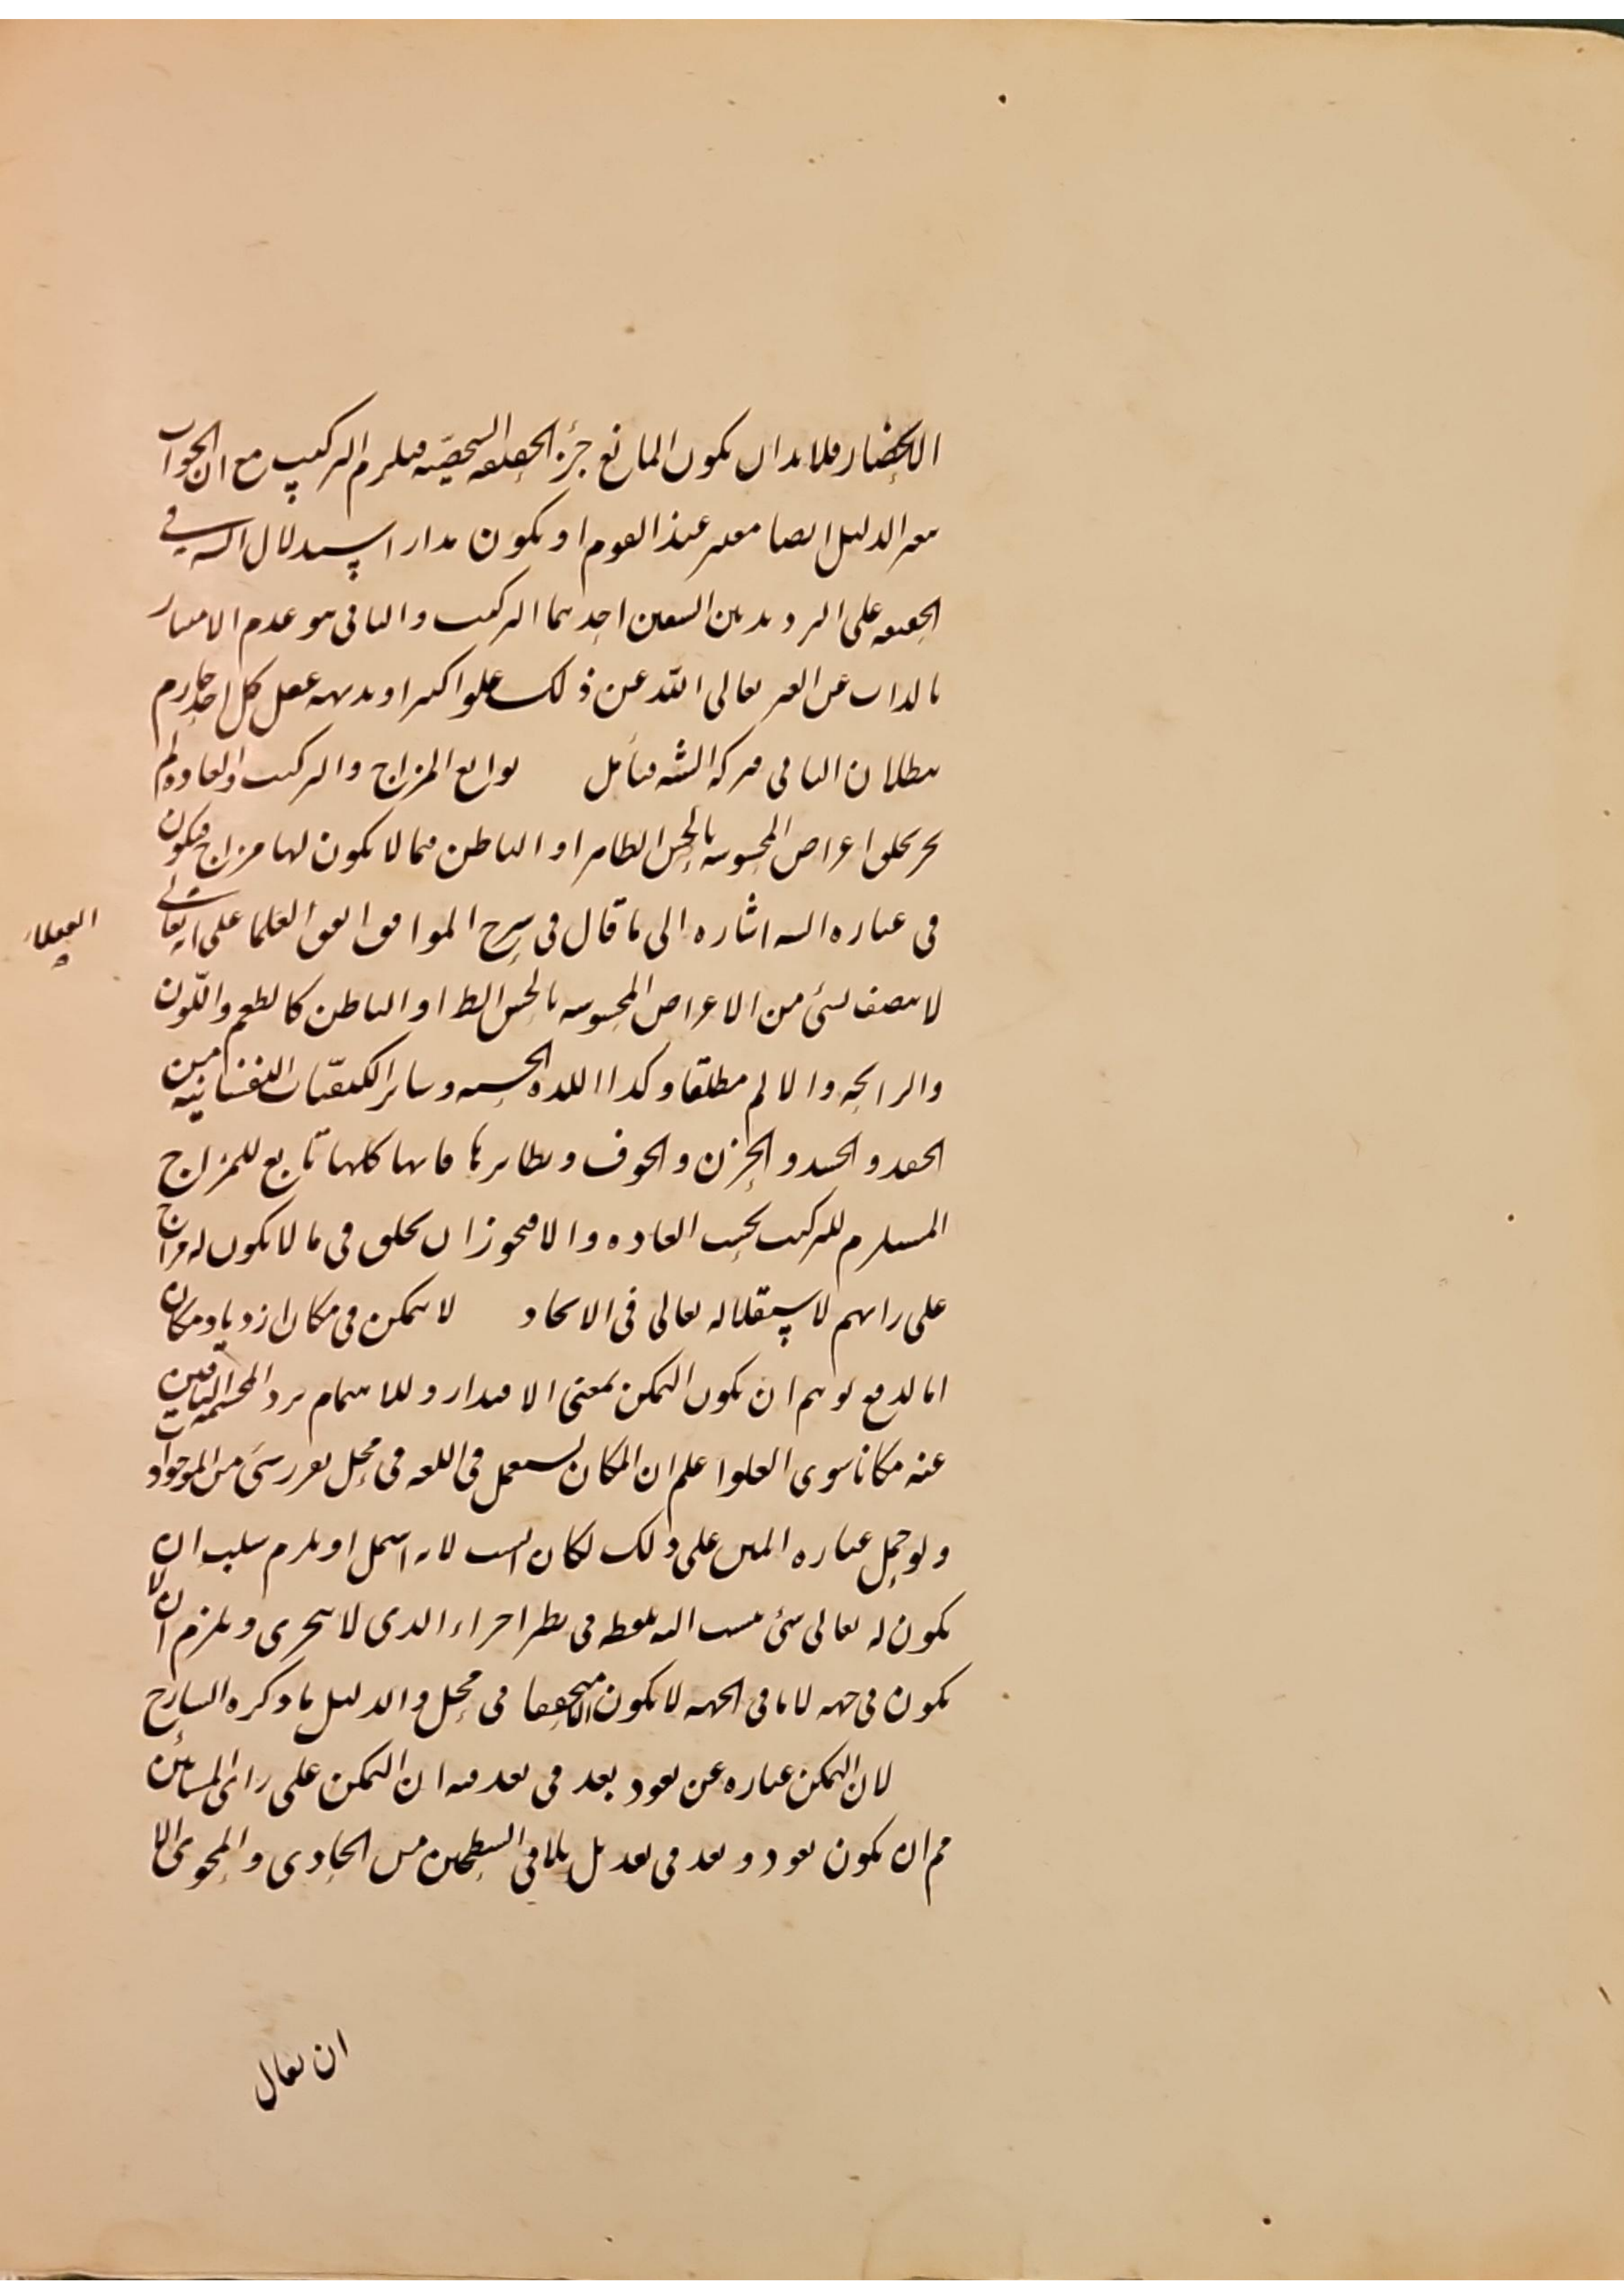 الانحصار فلا بد ان يكون المانع جزء الحقيقة الشخصية فيلزم التركيب مع ان الجواب
بغير الدليل ايضا معتبر عند القوم او يكون مدار استدلال الشه في
الحقيقه على الترديد بين الشقين احدهما التركيب والثاني هو عدم الامتياز
بالذات عن الغير تعالى الله عن ذلك علوا كبيرا وبديهه عقل كل احد جازم
ببطلان الثاني فتركه الشه فتأمل توابع المزاج والتركيب والعادة لم
يجر بخلق اعراض المحسوسه بالحس الظاهر او الباطن فيما لا يكون لها مزاج فيكون
في عباره الشه اشاره الى ما قال في شرح المواقف اتفق العلما على انه تعالى
العقلاء
لا يتصف بشئ من الاعراض المحسوسه بالحس الظ او الباطن كالطعم واللّون
والرايحه والالم مطلقا وكذا اللذه الحسيه وساير الكيفيّات النفسانيه من
الحقد والحسد والحزن والخوف ونظايرها فانها كلها تابع للمزاج
المستلزم للتركيب بحسب العاده والا فيجوز ان يخلق في ما لا يكون له مزاج
على رايهم لاستقلاله تعالى في الايجاد لا يتمكن في مكان ازدياد مكان
اما لدفع توهم ان يكون التمكن بمعنى الاقتدار وللاهتمام برد المجسمه النافين
عنه مكانا سوى العلو اعلم ان المكان يستعمل في اللغه في محل تقرر شئ من الموجودات
ولو حمل عباره المتن على ذلك لكان انسب لانه اشمل او يلزم سلب ان
يكون له تعالى شئ ينسب اليه بنقطه في نظر اجزاء الذي لا يتجزى ويلزم ان لا
يكون في جهه لان ما في الجهه لا يكون الا متحققا في محل والدليل ما ذكره الشارح
لان التمكن عباره عن نفوذ بعد في بعد فيه ان التمكن على راى المشائين
مم ان يكون نفوذ بعد في بعد بل تلاقى السطحين من الحاوى والمحوى الا
ان يقال